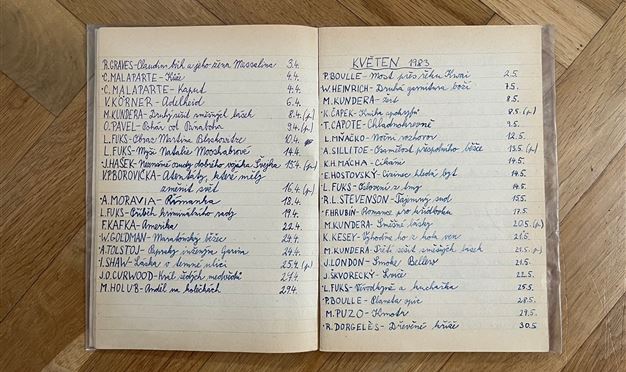 R. GRAVES - Claudius bůh a jeho žena Messalina 3.4.
C. MALAPARTE - Kůže 4.4.
C. MALAPARTE - Kaput 4.4.
V. KÖRNER - Adelheid 6.4.
M. KUNDERA - Druhý sešit směšných lásek 8.4. (p)
O. PAVEL - Pohár od Pánaboha 9.4. (p)
L. FUKS - Obraz Martina Blaskowitze 10.4.
L. FUKS - Myši Natalie Mooshabrové 14.4.
J. HAŠEK - osudy dobrého vojáka Švejka 15.4. (p)
V.P. BOROVIČKA - Atentáty, které měly
změnit svět 16.4. (p)
A. MORAVIA - Římanka 18.4.
L. FUKS - Příběh kriminálního rady 19.4.
F. KAFKA - Amerika 22.4.
W. GOLDMAN - Maratónský běžec 24.4.
A. TOLSTOJ - Paprsky inženýra Garina 24.4.
I. SHAW - Láska v temné ulici 25.4. (p)
J.O. CURWOOD - Král šedých medvědů 27.4.
M. HOLUB - Anděl na kolečkách 29.4.
KVĚTEN 1983
P. BOULLE - Most přes řeku Kwai 2.5.
W. HEINRICH - Druhá garnitura boží 7.5.
M. KUNDERA - Žert 8.5.
K. ČAPEK - Kniha apokryfů 8.5. (p)
T. CAPOTE - Chladnokrevně 9.5.
L. MŇAČKO - Noční rozhovor 12.5.
A. SILLITOE - Osamělost přespolního běžce 13.5. (p)
K.H. MÁCHA - Cikáni 14.5.
E. HOSTOVSKÝ - Cizinec hledá byt 14.5.
L. FUKS - Oslovení z tmy 14.5.
R.L. STEVENSON - Tajemný soud 15.5.
F. HRUBÍN - Romance pro křídlovku 17.5.
M. KUNDERA - Směšné lásky 20.5. (p)
K. KESEY - Vyhoďme ho z kola ven 21.5.
M. KUNDERA - Třetí sešit směšných lásek 21.5. (p)
J. LONDON - Smoke Bellew 21.5.
J. ŠKVORECKÝ - Lvíče 22.5.
L. FUKS - Vévodkyně a kuchařka 25.5.
P. BOULLE - Planeta opic 28.5.
M. PUZO - Kmotr 29.5.
R. DORGELÈS - Dřevěné kříže 30.5.